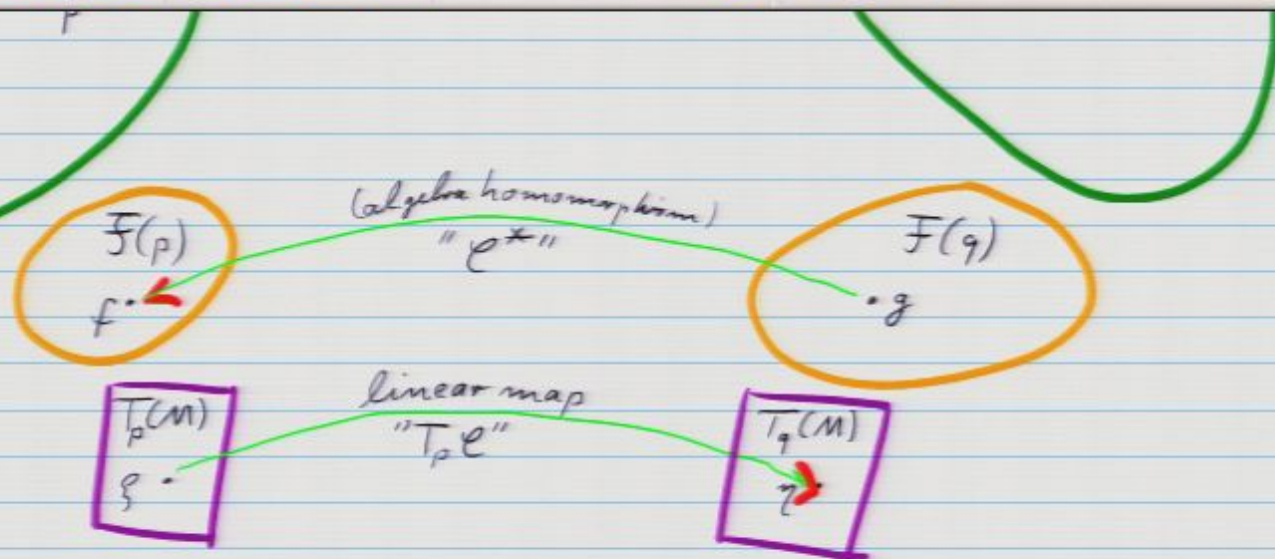 p
(algebra homomorphism)
F(p)
"φ*"
F(q)
f
g
linear map
T_p(M)
"T_pφ"
T_q(M)
ξ
η